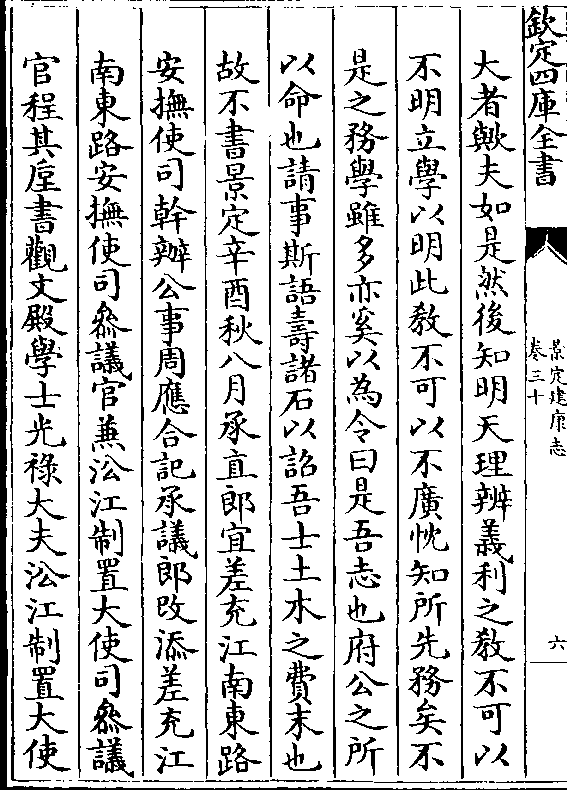 欽定四庫全書
景定建康志
卷三十
六
大者歟夫如是然後知明天理辨義利之教不可以
不明立學以明此教不可以不廣恱知所先務矣不
是之務學雖多亦奚以為令曰是吾志也府公之所
以命也請事斯語壽諸石以詔吾士土木之費末也
故不書景定辛酉秋八月承直郎宜差充江南東路
安撫使司幹辦公事周應合記承議郎改添差充江
南東路安撫使司叅議官兼㳂江制置大使司叅議
官程其垕書觀文殿學士光祿大夫㳂江制置大使